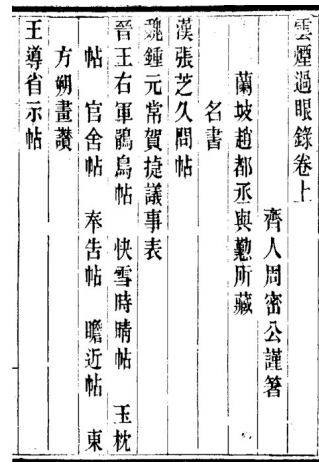 雲煙過眼錄卷上
齊人周密公謹著
蘭坡趙都丞與懃所藏
名書
漢張芝久問帖
魏鍾元常賀捷議事表
晉王右軍鶻烏帖 快雪時晴帖 玉枕
帖 官舍帖 奉告帖 瞻近帖 東
方朔畫讚
王導省示帖